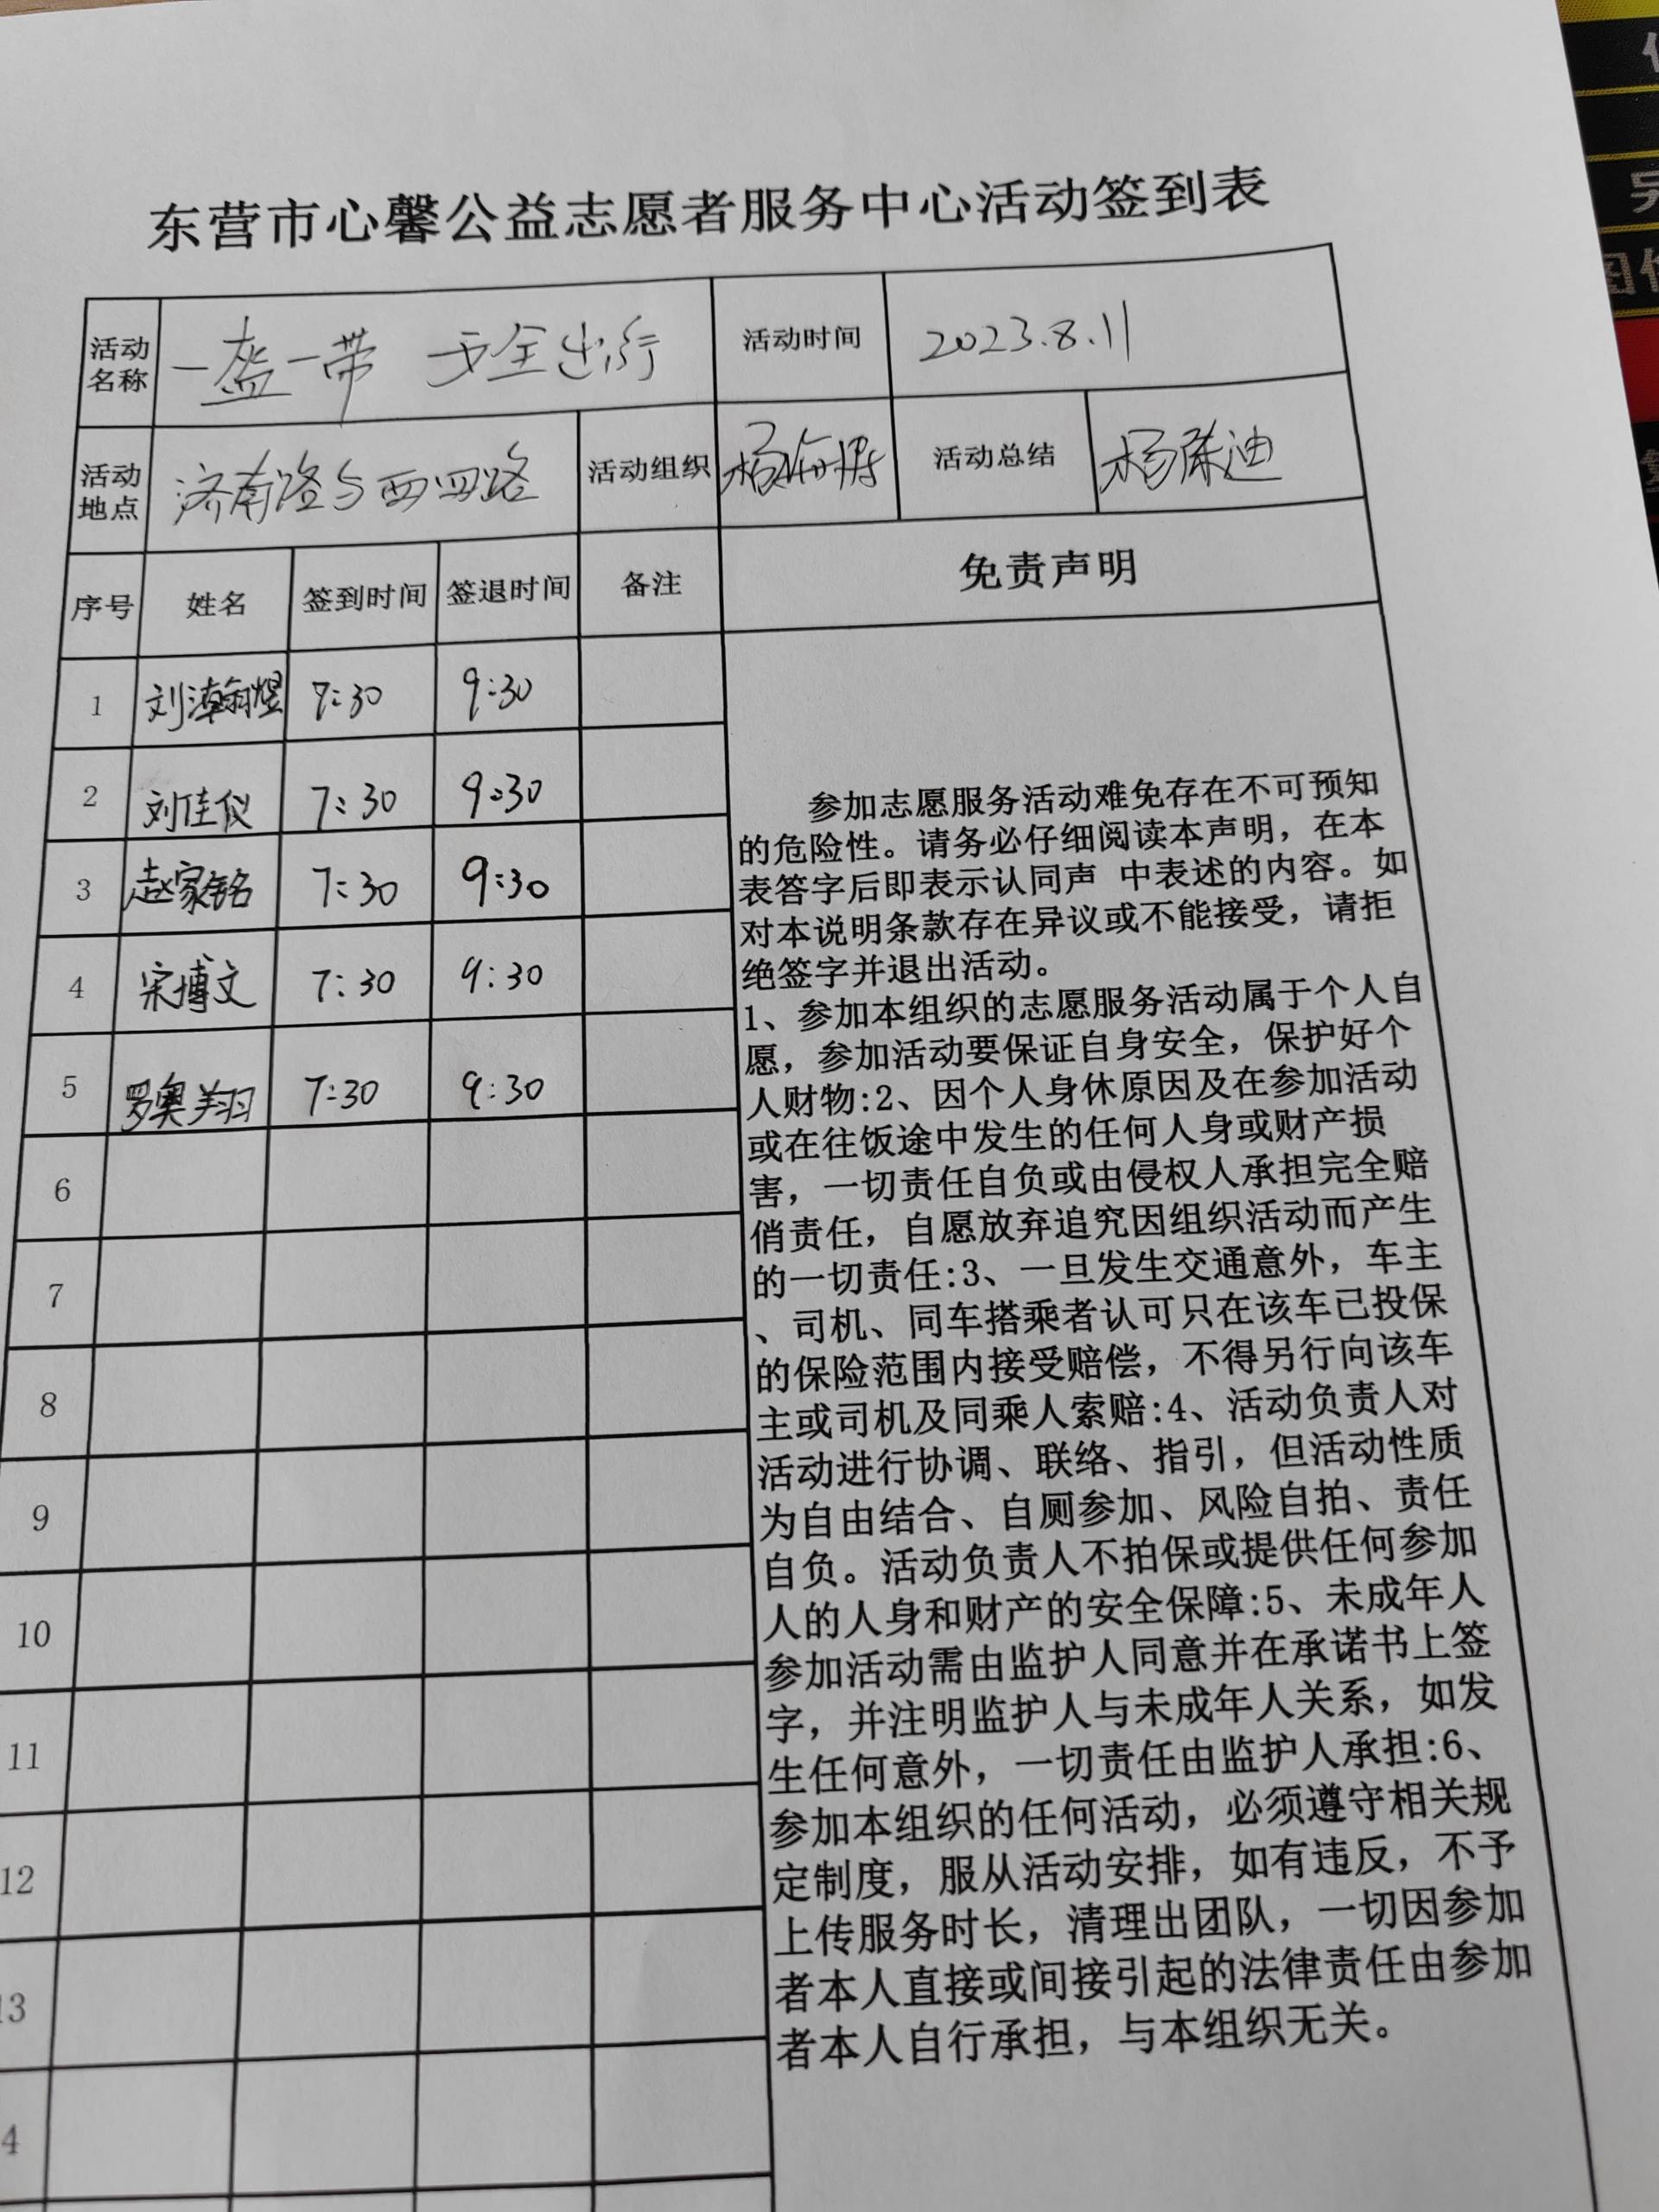 东营市心馨公益志愿者服务中心活动签到表
活动名称 一盔一带 安全出行 活动时间 2023.8.11
活动地点 济南路与西四路 活动组织 活动总结
序号 姓名 签到时间 签退时间 备注 免责声明
1 刘瀚煜 7:30 9:30
2 刘佳仪 7:30 9:30
3 赵家铭 7:30 9:30
4 宋博文 7:30 9:30
5 罗奥翔 7:30 9:30
6
7
8
9
10
11
12
13
4
参加志愿服务活动难免存在不可预知
的危险性。请务必仔细阅读本声明，在本
表答字后即表示认同声 中表述的内容。如
对本说明条款存在异议或不能接受，请拒
绝签字并退出活动。
1、参加本组织的志愿服务活动属于个人自
愿，参加活动要保证自身安全，保护好个
人财物:2、因个人身休原因及在参加活动
或在往饭途中发生的任何人身或财产损
害，一切责任自负或由侵权人承担完全赔
俏责任，自愿放弃追究因组织活动而产生
的一切责任:3、一旦发生交通意外，车主
、司机、同车搭乘者认可只在该车已投保
的保险范围内接受赔偿，不得另行向该车
主或司机及同乘人索赔:4、活动负责人对
活动进行协调、联络、指引，但活动性质
为自由结合、自厕参加、风险自拍、责任
自负。活动负责人不拍保或提供任何参加
人的人身和财产的安全保障:5、未成年人
参加活动需由监护人同意并在承诺书上签
字，并注明监护人与未成年人关系，如发
生任何意外，一切责任由监护人承担:6、
参加本组织的任何活动，必须遵守相关规
定制度，服从活动安排，如有违反，不予
上传服务时长，清理出团队，一切因参加
者本人直接或间接引起的法律责任由参加
者本人自行承担，与本组织无关。